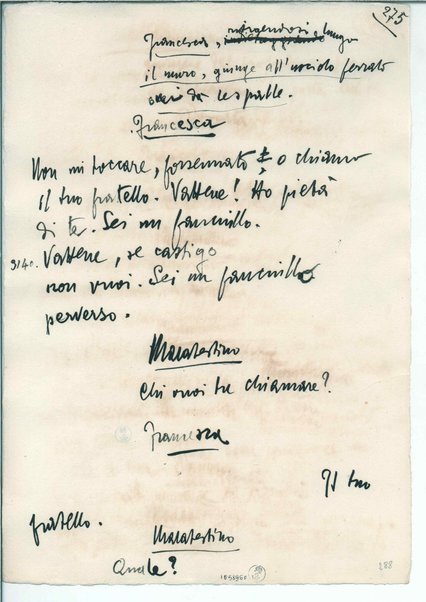 275
Francesca, rasentando lungo
il muro, giunge all'uscio ferrato
ove dà le spalle.
Francesca
Non mi toccare, forsennato, o chiamo
il tuo fratello. Vattene! Ho pietà
di te. Sei un fanciullo.
3140. Vattene, se castigo
non vuoi. Sei un fanciullo
perverso.
Malatestino
Chi vuoi tu chiamare?
Francesca
Il tuo
fratello.
Malatestino
Quale?
288